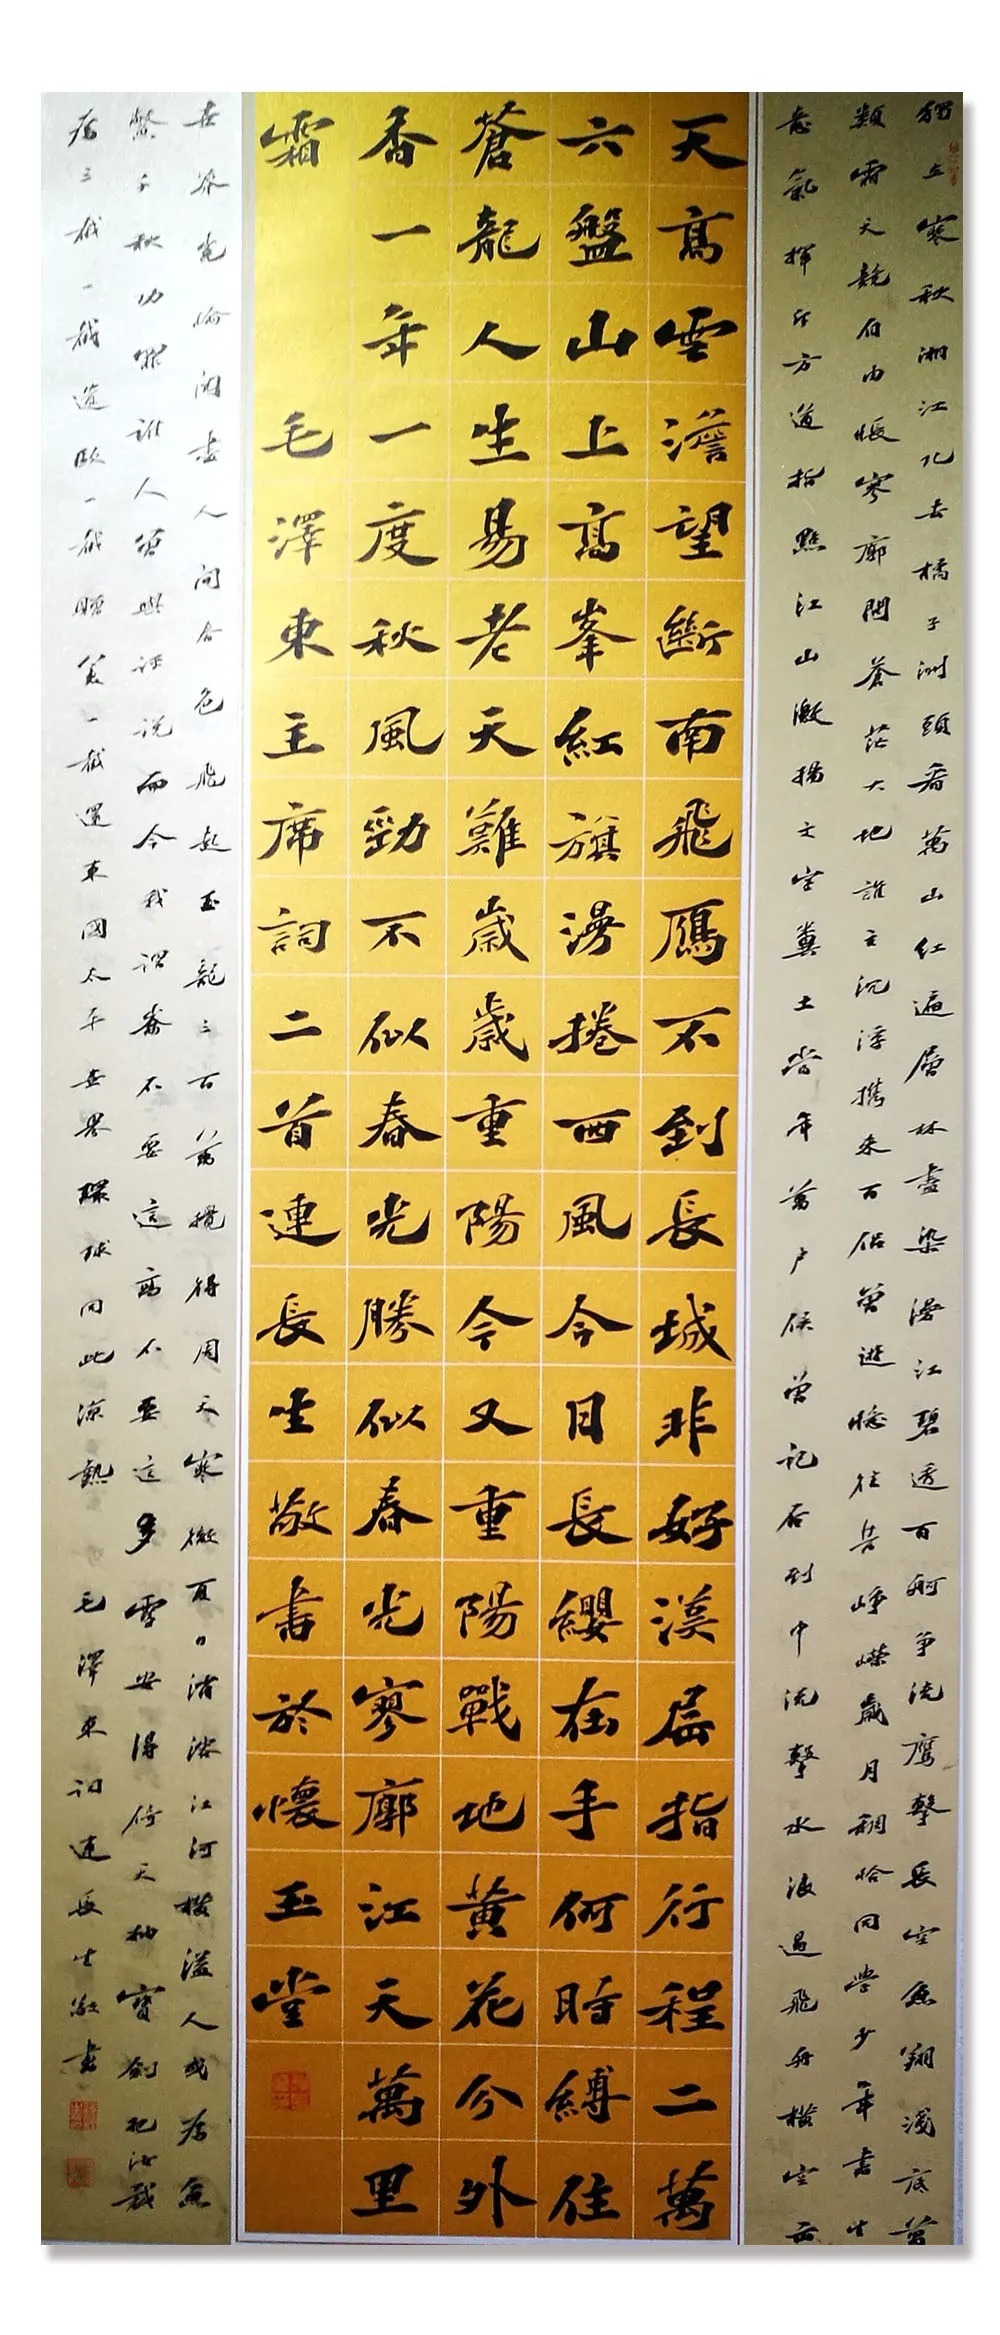 獨立寒秋湘江北去橘子洲頭看萬山紅遍層林盡染漫江碧透百舸爭流鷹擊長空魚翔淺底萬
類霜天競自由悵寥廓問蒼茫大地誰主沉浮攜來百侶曾遊憶往昔崢嶸歲月稠恰同學少年書生
意氣揮斥方遒指點江山激揚文字糞土當年萬戶侯曾記否到中流擊水浪遏飛舟橫空出
天高雲澹望斷南飛鴈不到長城非好漢屈指行程二萬
六盤山上高峯紅旗漫捲西風今日長纓在手何時縛住
蒼龍人生易老天難歲歲重陽今又重陽戰地黃花今外
香一年一度秋風勁不似春光勝似春光寥廓江天萬里
霜 毛澤東主席詞二首連長生敬書於懷玉堂
世莽崑崙閱盡人間春色飛起玉龍三百萬攪得周天寒徹夏日消溶江河橫溢人或為魚
鱉千秋功罪誰人曾與評說而今我謂崙不要這高不要這多雪安得倚天抽寶劍把汝裁
為三截一截遺歐一截贈美一截還東國太平世界環球同此涼熱 毛澤東詞連長生敬書